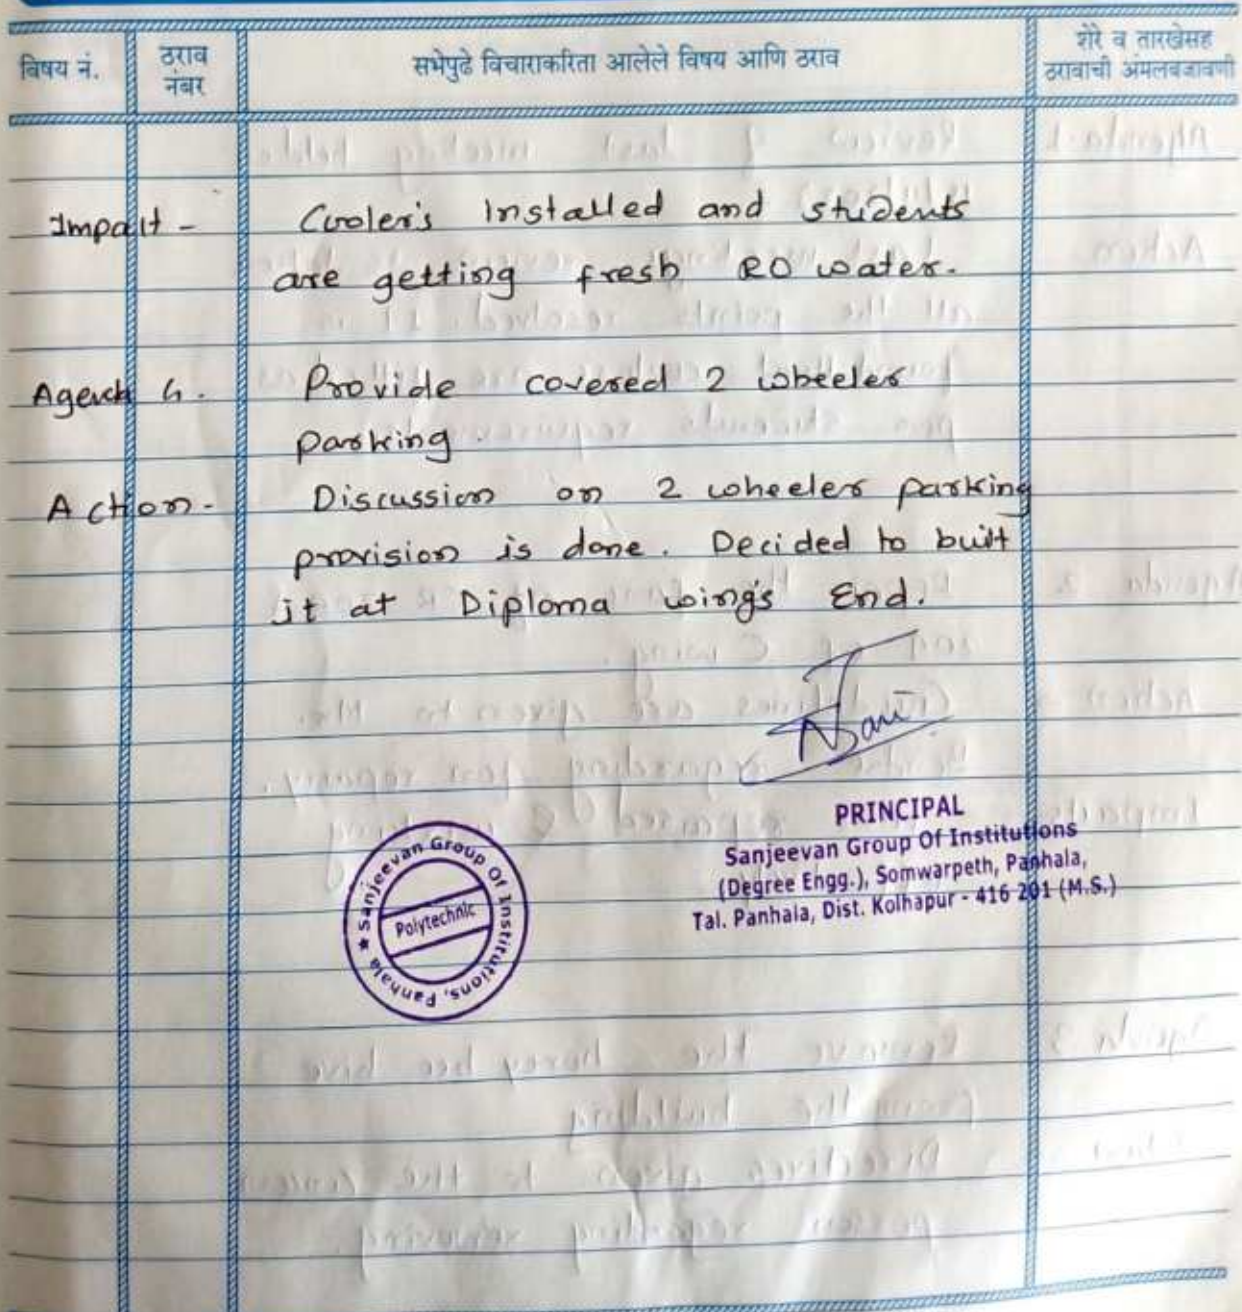 विषय नं.
ठराव
नंबर
सभेपुढे विचाराकरिता आलेले विषय आणि ठराव
शेरे व तारखेसह
ठरावाची अंमलबजावणी
Impact - Cooler's Installed and students
are getting fresh RO water.
Agenda 4. Provide covered 2 wheeler
parking.
Action - Discussion on 2 wheeler parking
provision is done. Decided to built
it at Diploma wing's End.
PRINCIPAL
Sanjeevan Group Of Institutions
(Degree Engg.), Somwarpeth, Panhala,
Tal. Panhala, Dist. Kolhapur - 416 201 (M.S.)
★ Sanjeevan Group Of Institutions, Panhala
Polytechnic